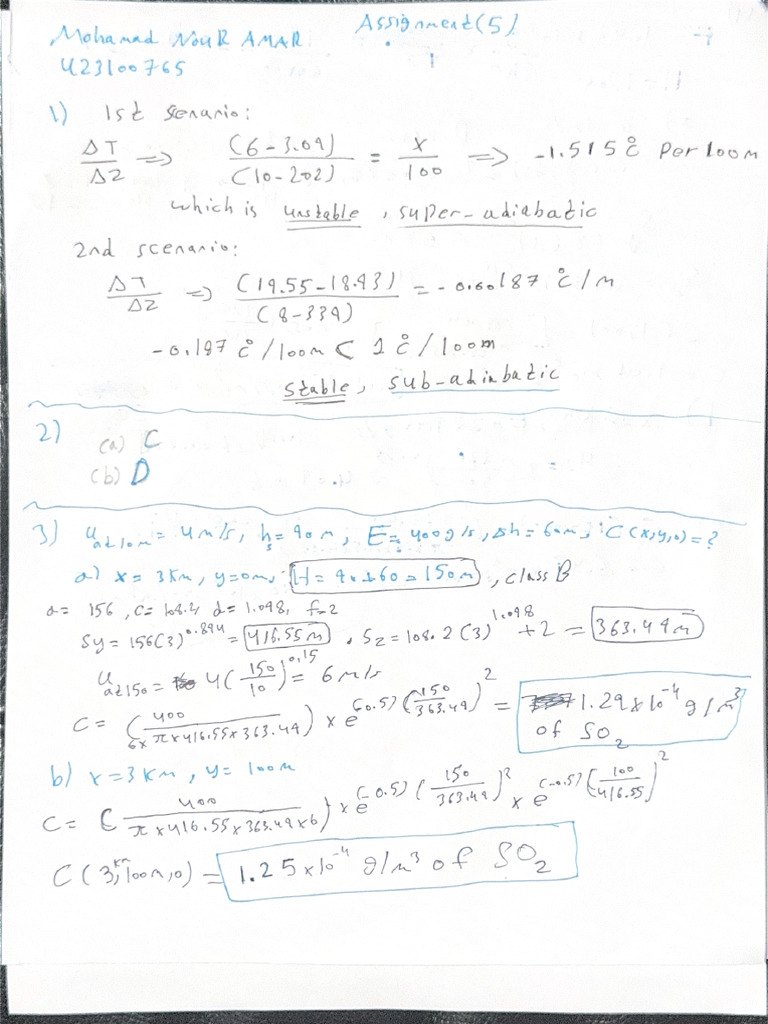 Assignment(5)
Mohamad NOUR AMAR
U23100765
1) 1st senario:
ΔT/ΔZ => (6-3.09)/(10-202) = x/100 => -1.515°C per 100m
which is unstable, super-adiabatic
2nd scenario:
ΔT/ΔZ => (19.55-18.93)/(8-339) = -0.00187 °C/m
-0.187 °C/100m < 1 °C/100m
stable, sub-adiabatic
2) (a) C
(b) D
3) u at 10m = 4 m/s, hs = 90m, E = 400 g/s, Δh = 60m, C(x,y,0)=?
a) x = 3Km, y=0m, H = 90+60 = 150m, class B
a = 156, c = 108.2 d = 1.098, f=2
Sy = 156(3)^0.894 = 416.55m . Sz = 108.2(3)^1.098 + 2 = 363.49m
u at 150 = 4(150/10)^0.15 = 6 m/s
C = (400/6×π×416.55×363.49) × e^(-0.5)(150/363.49)^2 = 1.29×10^-4 g/m^3 of SO2
b) x = 3Km, y = 100m
C = (400/π×416.55×363.49×6) × e^(-0.5)(150/363.49)^2 × e^(-0.5)(100/416.55)^2
C(3km,100m,0) = 1.25×10^-4 g/m^3 of SO2